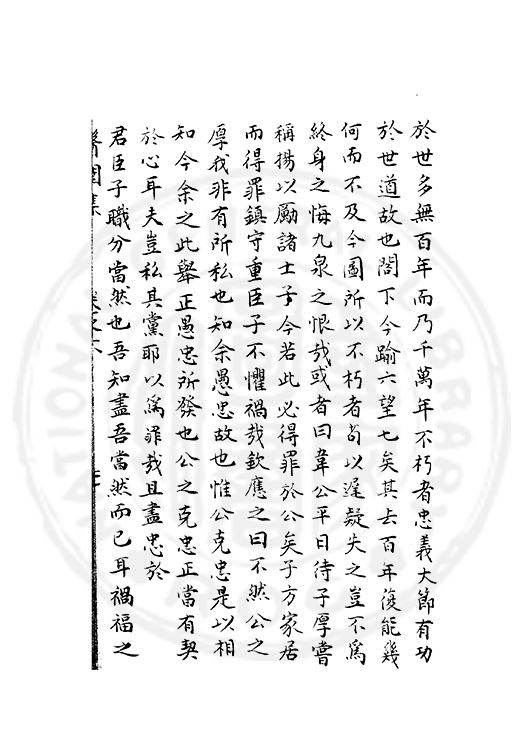 於世多無百年而乃千萬年不朽者忠義大節有功
於世道故也閤下今踰六望七矣其去百年復能幾
何而不及今圖所以不朽者苟以遲疑失之豈不爲
終身之悔九泉之恨哉或者曰韋公平日待子厚嘗
稱揚以勵諸士子今若此必得罪於公矣子方家居
而得罪鎮守重臣子不懼禍哉欽應之曰不然公之
厚我非有所私也知余愚忠故也惟公克忠是以相
知今余之此舉正愚忠所發也公之克忠正當有契
於心耳夫豈私其黨耶以爲罪哉且盡忠於
君臣子職分當然也吾知盡吾當然而已耳禍福之
集 卷之六